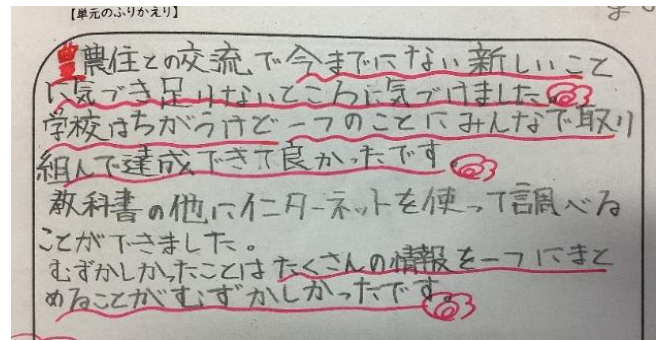 【単元のふりかえり】
豊農住との交流で今までにない新しいこと
に気づき足りないところに気づけました。
学校はちがうけど一つのことにみんなで取り
組んで達成できて良かったです。
教科書の他にインターネットを使って調べる
ことができました。
むずかしかったことはたくさんの情報を一つにまと
めることがむずかしかったです。